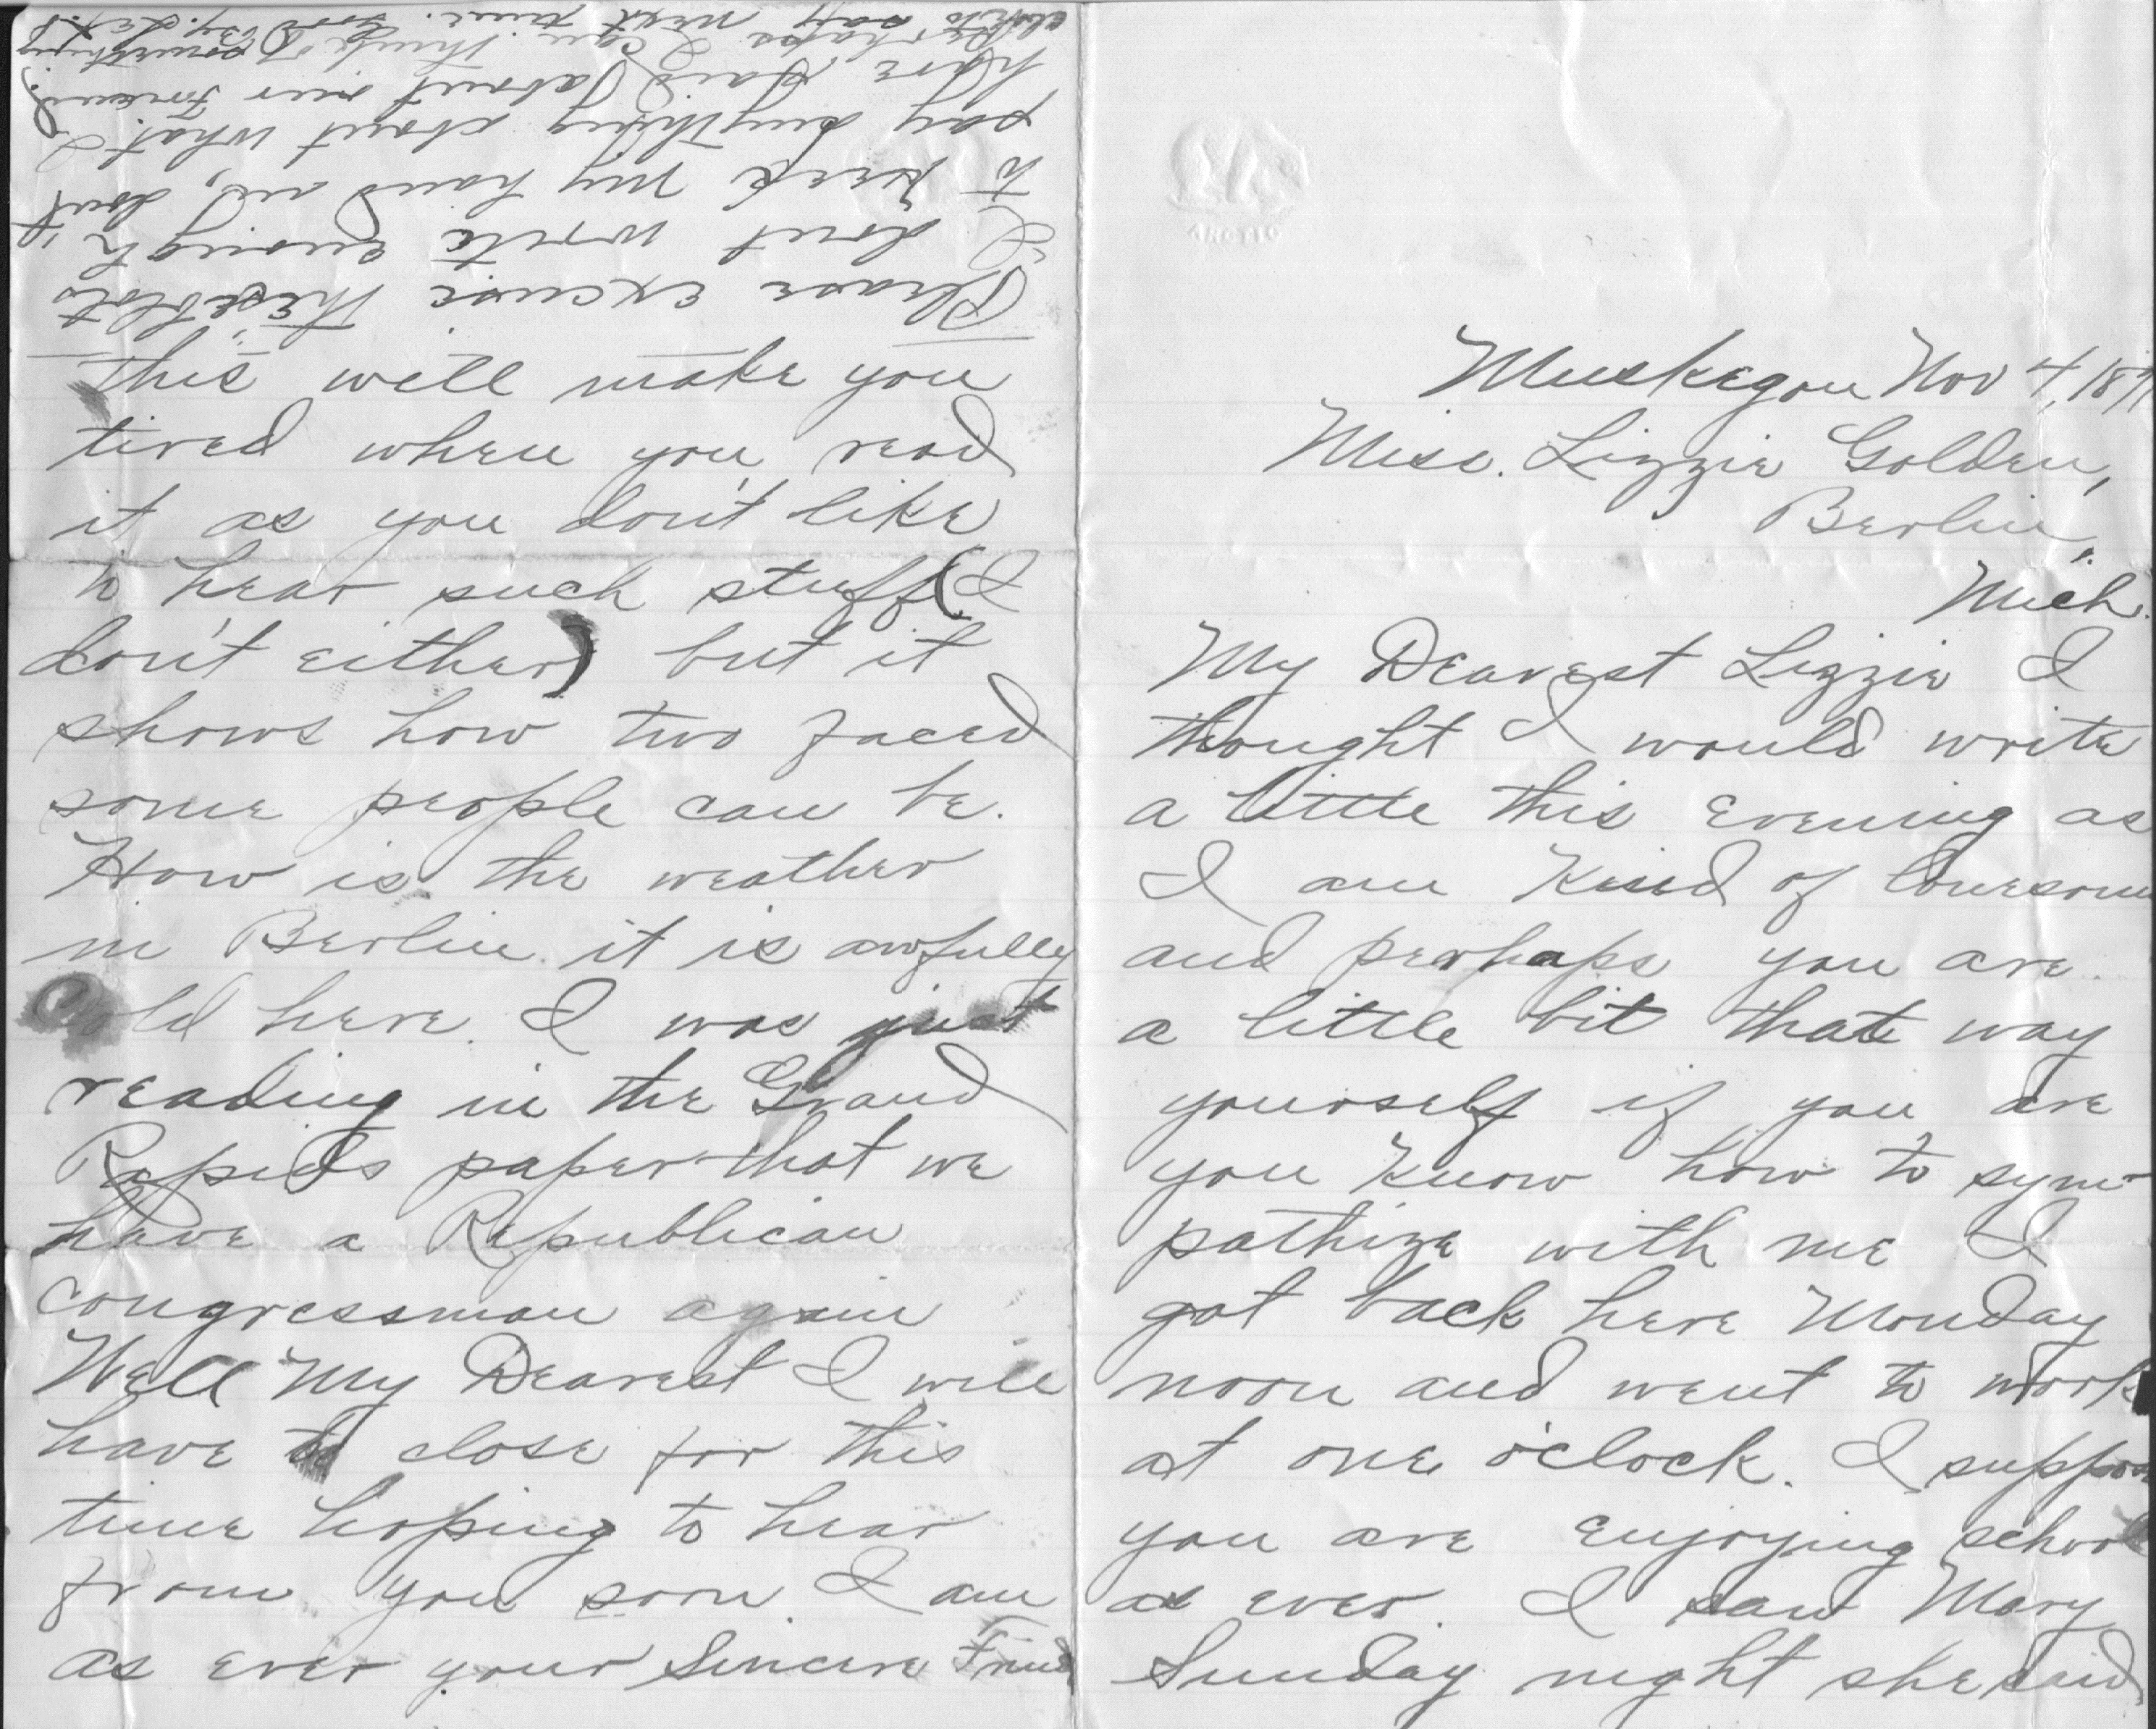 Muskegon Nov 4, 189
Miss. Lizzie Golden,
Berlin,
Mich.
My Dearest Lizzie I
thought I would write
a little this evening as
I am kind of lonesome
and perhaps you are
a little bit that way
yourself if you are
you know how to sym-
pathize with me I
got back here Monday
noon and went to work
at one o'clock. I suppose
you are enjoying school
as ever. I saw Mary
Sunday night she said
this will make you
tired when you read
it as you don't like
to hear such stuff (I
don't either) but it
shows how two faced
some people can be.
How is the weather
in Berlin it is awfully
Cold here. I was just
reading in the Grand
Rapids paper that we
have a Republican
congressman again
Well My Dearest I will
have to close for this
time hoping to hear
from you soon I am
as ever your Sincere Friend
Please excuse these blots
I don't write enough
to keep my hand in, don't
say anything about what I
have said about our friend.
Perhaps I can think of something
else to say next time. Good By.
ARCTIC